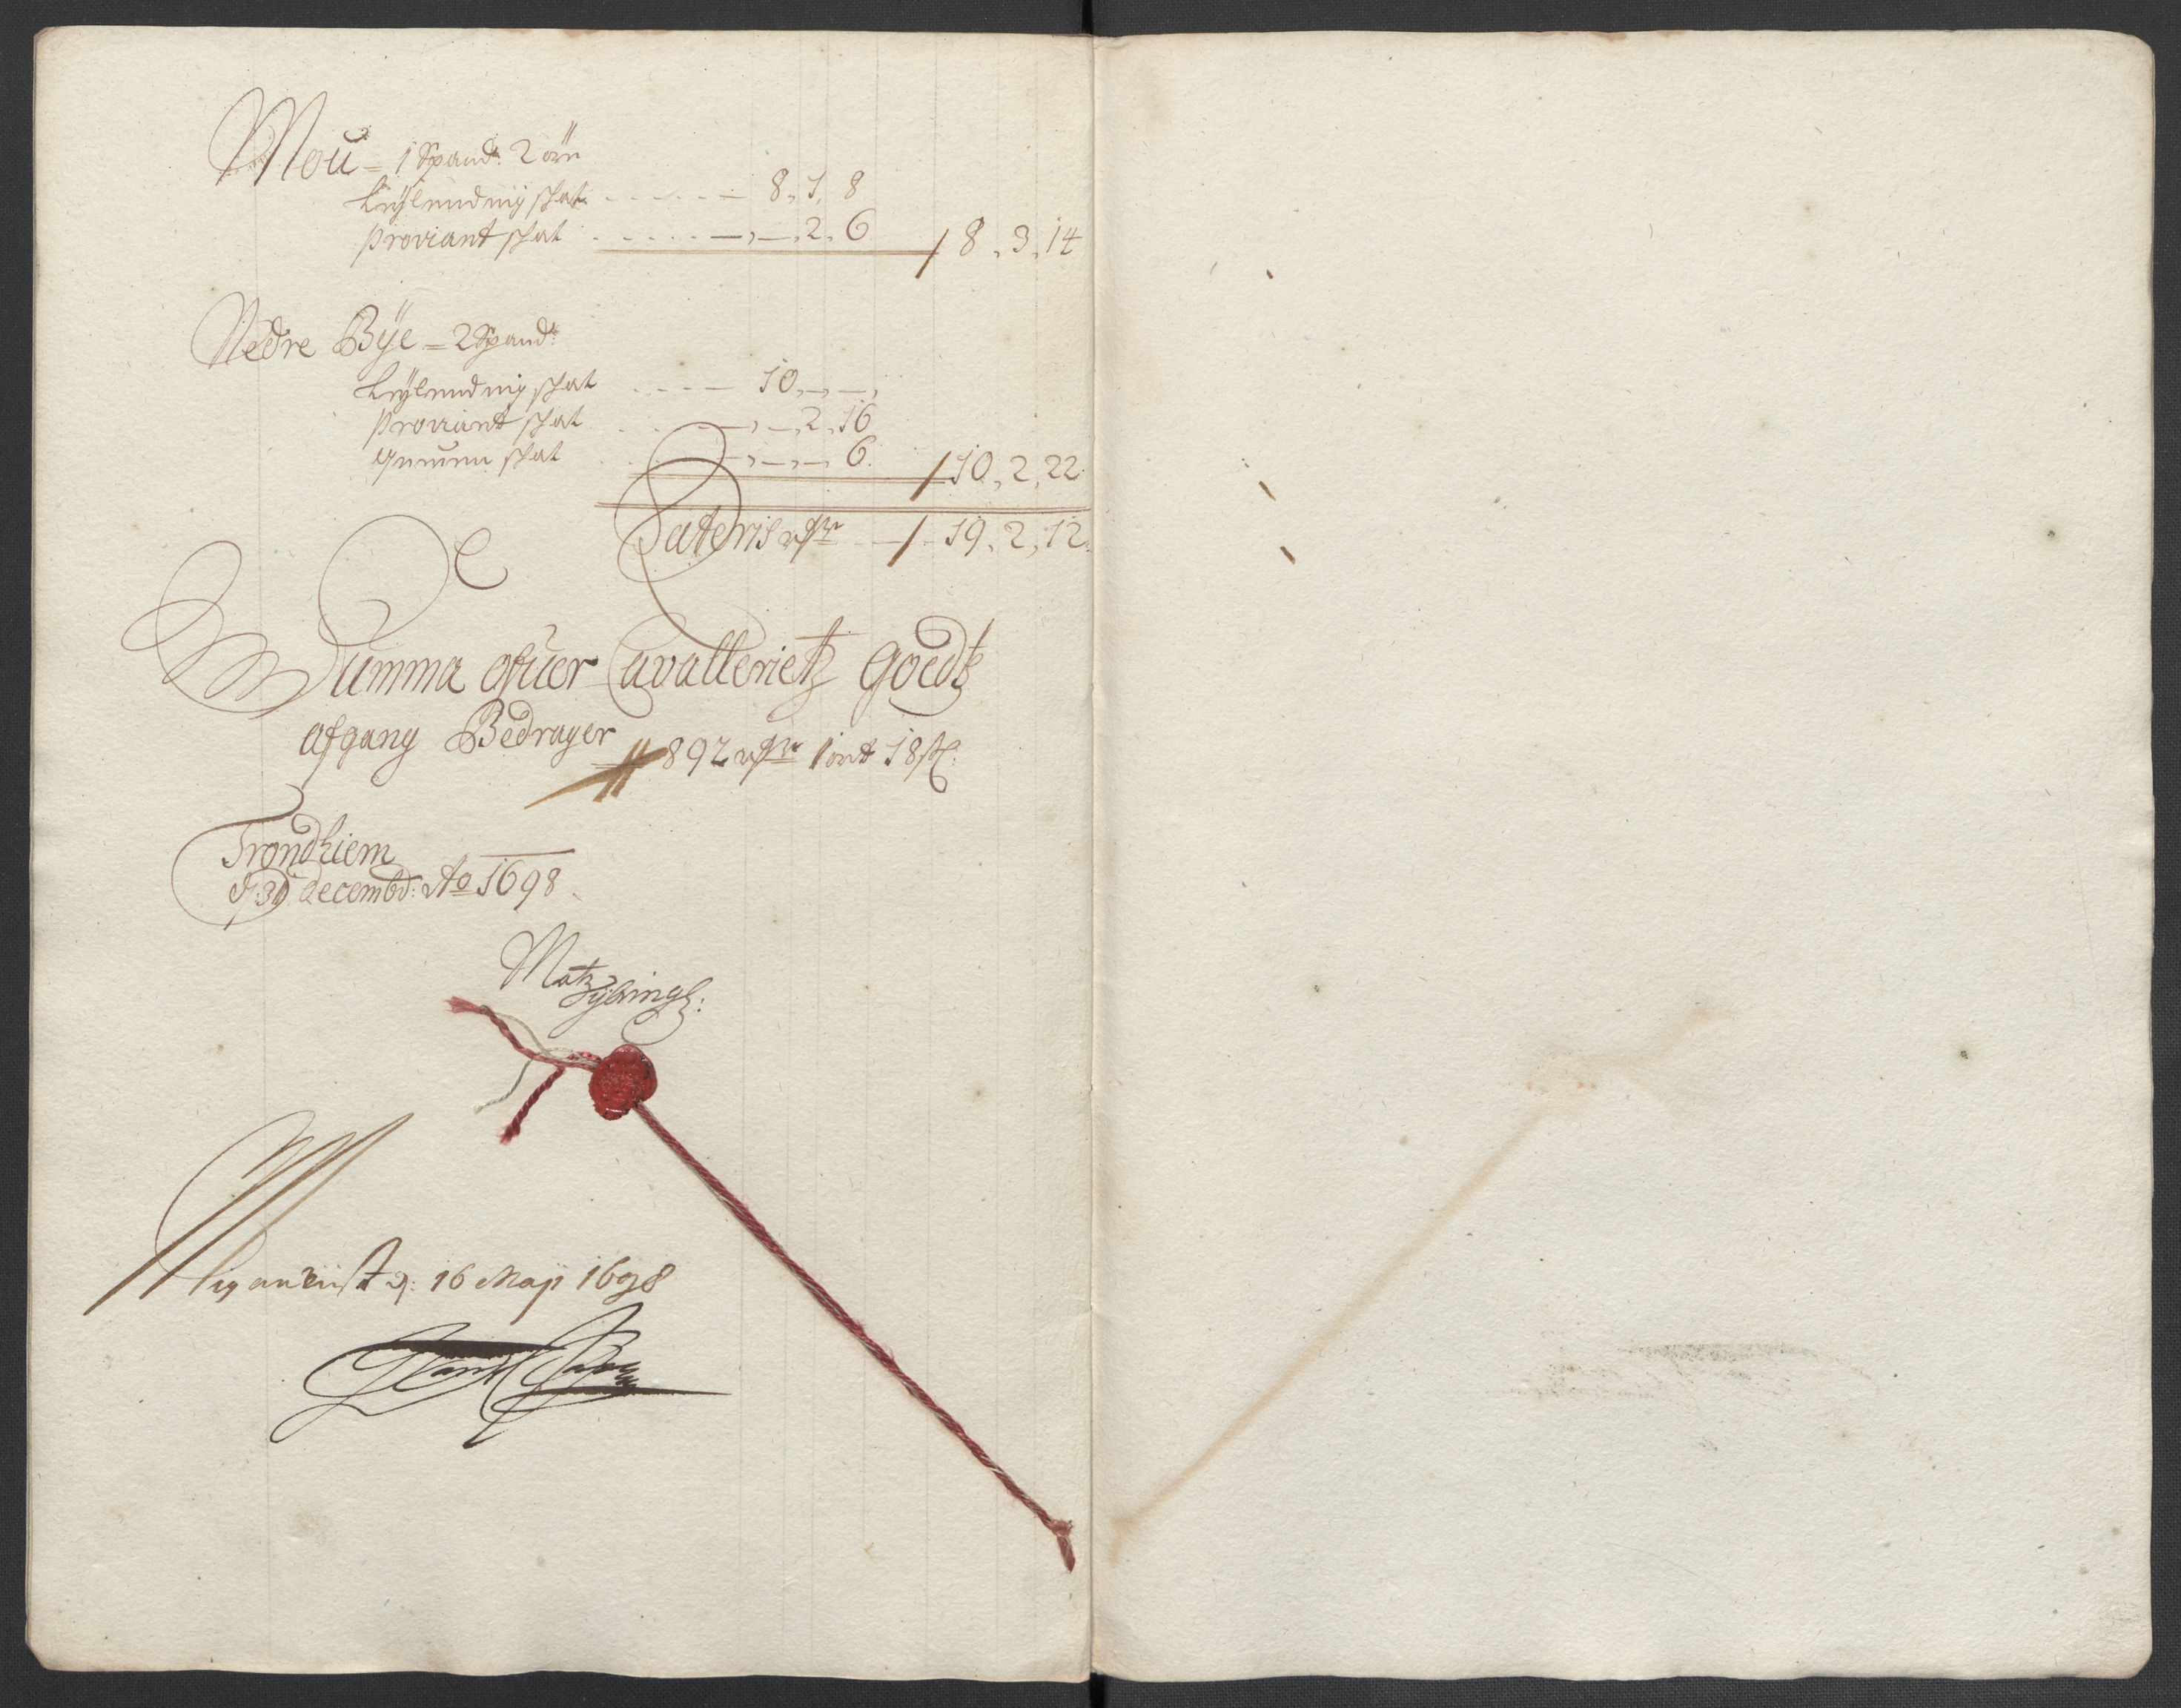 Mou = 1 Spand: 2 ørr
Leÿlending skat ..... — 8, 1, 8
Proviant skat ..... —,—, 2, 6 / 8, 3, 14
Nedre Bÿe = 2 Spand:
Leÿlending skat .... — 10,—,—,
Proviant skat . . —,—, 2, 16
skat . . —,—,— 6. / 10, 2, 22.
Lateris rdr — / 19, 2, 12.
Summa ofuer Cavallerietz Goedtz
afgang Bedrager
892 rdr 1 ort 18 s:
Trondhiem
d: 31 decembd: Ao 1698.
Matz
d: 16 Maÿ 1698